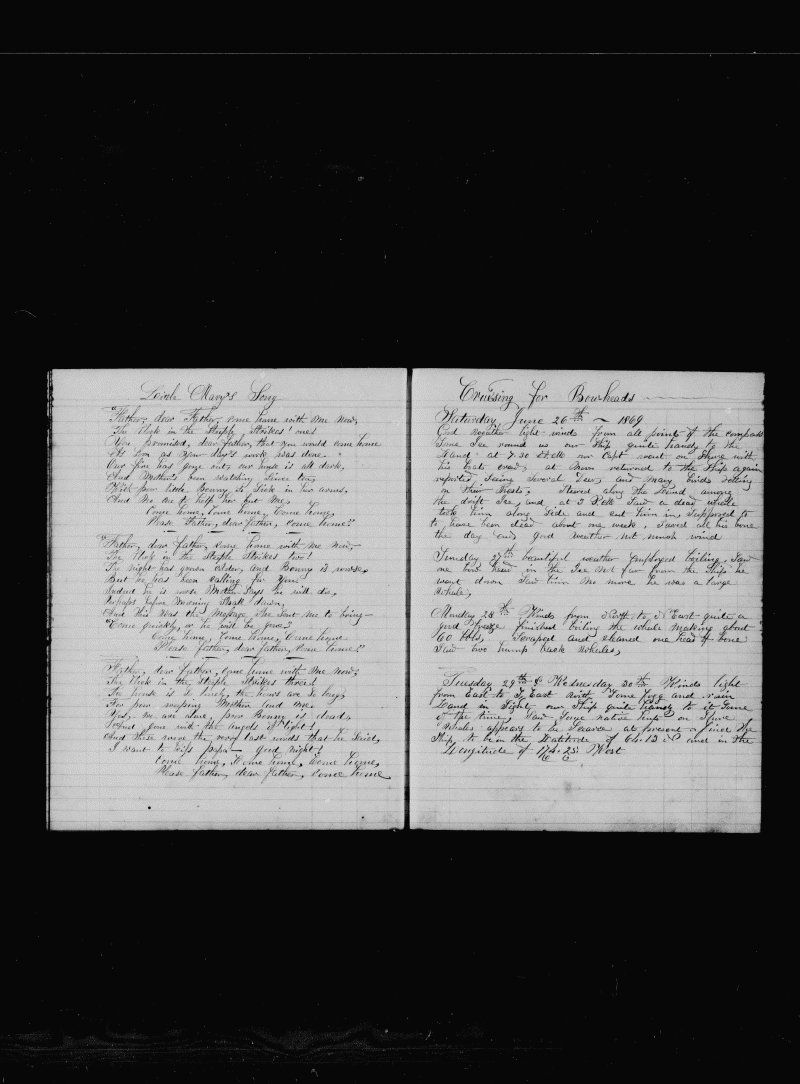 Little Mary's Song
"Father, dear Father, come home with me now,
The Clock in the Steeple Strikes! one!
You promised, dear father, that you would come home
As soon as your day's work was done.
Our fire has gone out, our house is all dark,
And Mother's been watching Since tea,
With poor little Benny So Sick in her arms,
And No one to help her but me.
Come home, Come home, Come home,
Please Father, dear father, come home?"
"Father, dear father, come home with me now,
The Clock in the Steeple Strikes two!
The night has grown colder, and Benny is worse,
But he has been calling for You
Indeed he is worse Mother Says he will die,
Perhaps before Morning Shall dawn,
And this is the Message She Sent me to bring—
"Come quickly, or he will be gone?
Come home, Come home, Come home
Please father, dear father, Come home?"
Father, dear father, Come home with Me Now,
The Clock in the Steeple Strikes three!
The house is So lonely, the hours are So long,
For poor weeping Mother and Me.
Yes, we are alone, poor Benny is dead,
And gone with the Angels of light!
And these were the very last words that he Said,
I want to kiss papa— good night!
Come home, Come home, Come home,
Please father, dear father, Come home
Cruising for Bowheads
Saturday June 26th ~ 1869
Good Weather light winds from all points of the compass
Some Ice round us our Ship quite handy to the
Land. at 7.30 our Capt went on Shore with
his boats crew at returned to the Ship again
reported Seeing Several and Many birds Setting
on their Nests. Steered along the land among
the drift Ice, and at 3 Saw a dead whale
took him along Side and cut him in, Supposed to
to have been dead about one week, Saved all his bone
the day ends good weather not much wind
Sunday 27th beautiful weather employed boiling, Saw
one bow head in the Ice not far from the Ship, he
went down Saw him No more he was a large
whale,
Monday 28th Winds from North to N East quite a
good Breeze finished boiling the whale making about
60 bbls, Scraped and cleaned one head of bone
Saw two hump back Whales,
Tuesday 29th & Wednesday 30th Winds light
from East to S, East with Some Fogg and rain
Land in Sight, our Ship quite handy to it Some
of the time, Saw Some native huts on Shore
Whales appears to be Scarce at present I find the
Ship to be in the Latitude of 64.12 N and in the
Longitude of 174.25 West